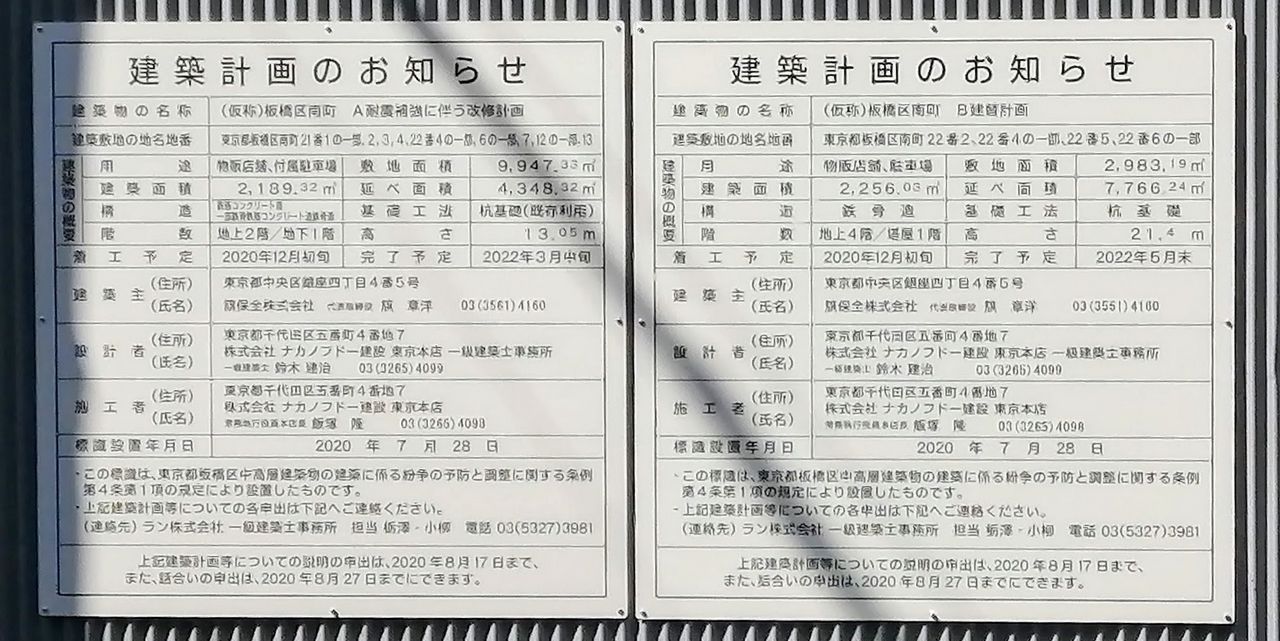 建築計画のお知らせ
建築物の名称 (仮称)板橋区南町 A耐震補強に伴う改修計画
建築敷地の地名地番 東京都板橋区南町21番1の一部、2、3、4、22番4の一部、6の一部、7、12の一部、13
建築物の概要
用途 物販店舗、付属駐車場 敷地面積 9,947.33㎡
建築面積 2,189.32㎡ 延べ面積 4,348.32㎡
構造 鉄筋コンクリート造 一部鉄骨鉄筋コンクリート造鉄骨造 基礎工法 杭基礎(既存利用)
階数 地上2階/地下1階 高さ 13.05m
着工予定 2020年12月初旬 完了予定 2022年3月中旬
建築主 (住所) 東京都中央区銀座四丁目4番5号
(氏名) 旗保全株式会社 代表取締役 旗 章洋 03(3561)4160
設計者 (住所) 東京都千代田区五番町4番地7
株式会社 ナカノフドー建設 東京本店 一級建築士事務所
(氏名) 一級建築士 鈴木 建治 03(3265)4099
施工者 (住所) 東京都千代田区五番町4番地7
株式会社 ナカノフドー建設 東京本店
(氏名) 常務執行役員本店長 飯塚 隆 03(3265)4098
標識設置年月日 2020年7月28日
・この標識は、東京都板橋区中高層建築物の建築に係る紛争の予防と調整に関する条例
第4条第1項の規定により設置したものです。
・上記建築計画等についての各申出は下記へご連絡ください。
(連絡先) ラン株式会社 一級建築士事務所 担当 栃澤・小柳 電話 03(5327)3981
上記建築計画等についての説明の申出は、2020年8月17日まで、
また、話合いの申出は、2020年8月27日までにできます。
建築計画のお知らせ
建築物の名称 (仮称)板橋区南町 B建替計画
建築敷地の地名地番 東京都板橋区南町22番2、22番4の一部、22番5、22番6の一部
建築物の概要
用途 物販店舗、駐車場 敷地面積 2,983.19㎡
建築面積 2,256.03㎡ 延べ面積 7,766.24㎡
構造 鉄骨造 基礎工法 杭基礎
階数 地上4階/塔屋1階 高さ 21.4m
着工予定 2020年12月初旬 完了予定 2022年5月末
建築主 (住所) 東京都中央区銀座四丁目4番5号
(氏名) 旗保全株式会社 代表取締役 旗 章洋 03(3561)4160
設計者 (住所) 東京都千代田区五番町4番地7
株式会社 ナカノフドー建設 東京本店 一級建築士事務所
(氏名) 一級建築士 鈴木 建治 03(3265)4099
施工者 (住所) 東京都千代田区五番町4番地7
株式会社 ナカノフドー建設 東京本店
(氏名) 常務執行役員本店長 飯塚 隆 03(3265)4098
標識設置年月日 2020年7月28日
・この標識は、東京都板橋区中高層建築物の建築に係る紛争の予防と調整に関する条例
第4条第1項の規定により設置したものです。
・上記建築計画等についての各申出は下記へご連絡ください。
(連絡先) ラン株式会社 一級建築士事務所 担当 栃澤・小柳 電話 03(5327)3981
上記建築計画等についての説明の申出は、2020年8月17日まで、
また、話合いの申出は、2020年8月27日までにできます。